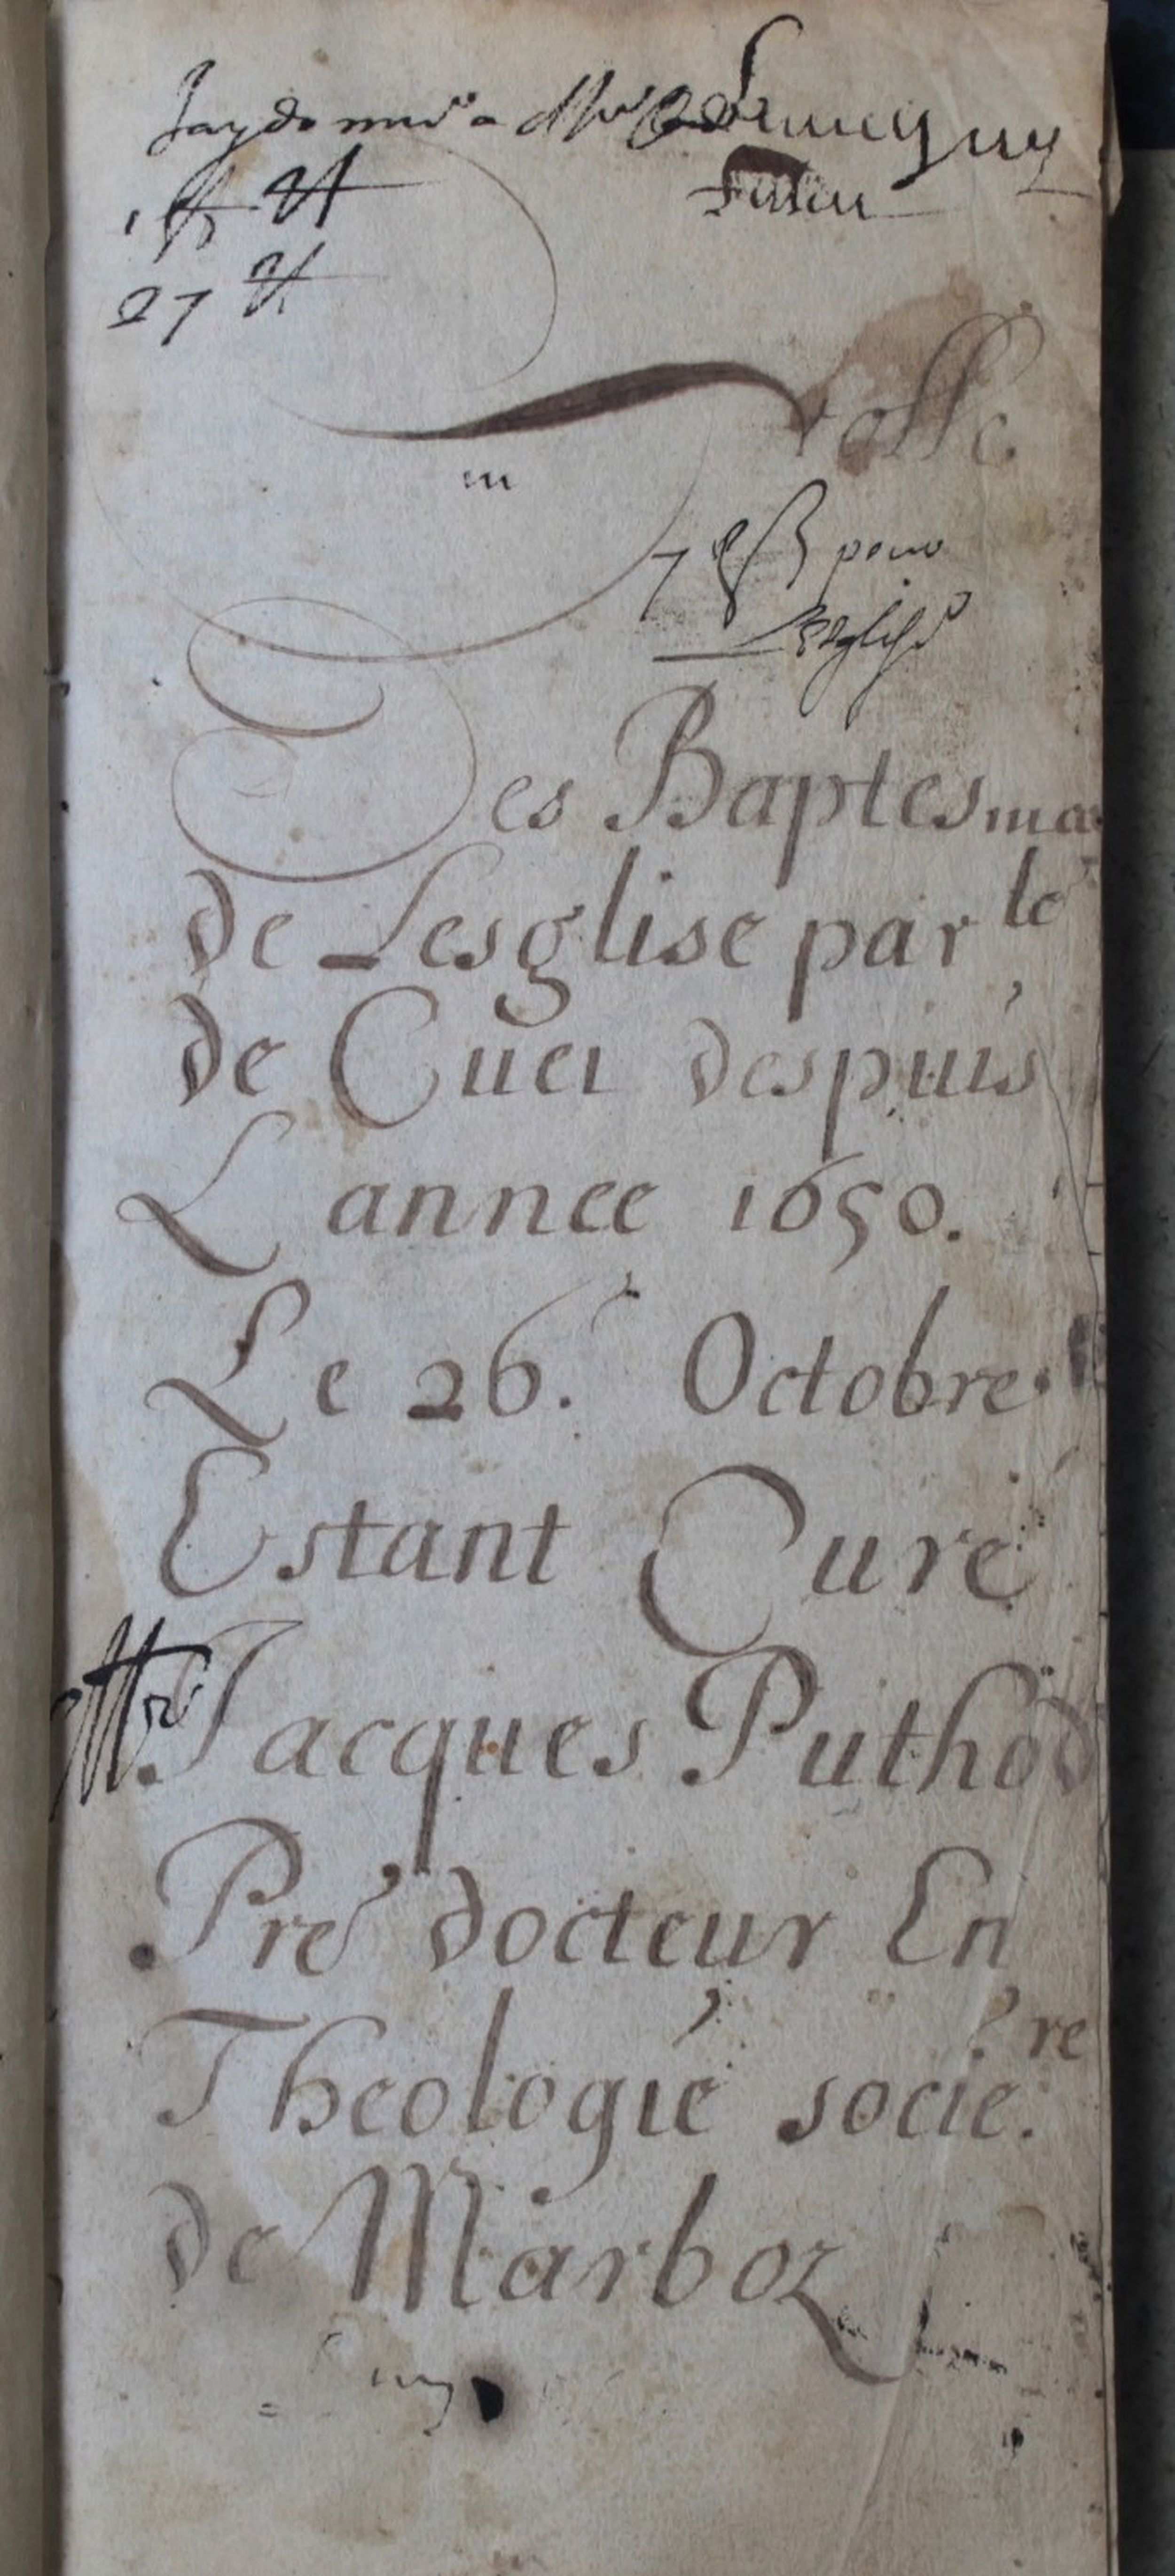 Jay donne a Mr
27 ₶
Rolle
7 ß pour
Lesglise
Des Baptesmes
de Lesglise par le
de Cuet despuis
L annee 1650.
Le 26. Octobre
Estant Curé
Mre Jacques Puthod
Pre docteur En
Theologie socié. re
de Marboz